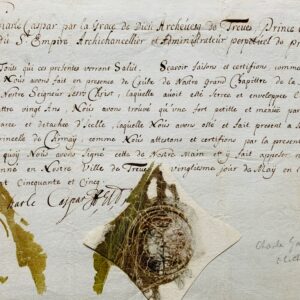 Charle Caspar par la Grace de Dieu Archevesq de Treves Prince
du S. Empire Archichancellier et Administrateur perpetuel de
Touts qui ces presentes verront Salut. Scavoir faisons et certifions comme
Nous avons fait en presence de Ceulx de Nostre Grand Chapitre de la
Nostre Seigneur Jesus Christ, laquelle avoit esté serree et enveloppee
attre vingt Ans, Nous avons trouvé qu'une fort petitte et menue par
arce et detachee d'Icelle, laquelle Nous avons osté et fait present a
rincesse de Chimay, comme Nous attestons et certifions par la presente
quoy Nous avons Signé cette de Nostre Main et y fait apposer
onné en Nostre Ville de Treves vengtiesme jour de May en l
nt Cinquante et Cincq.
Charle Caspar